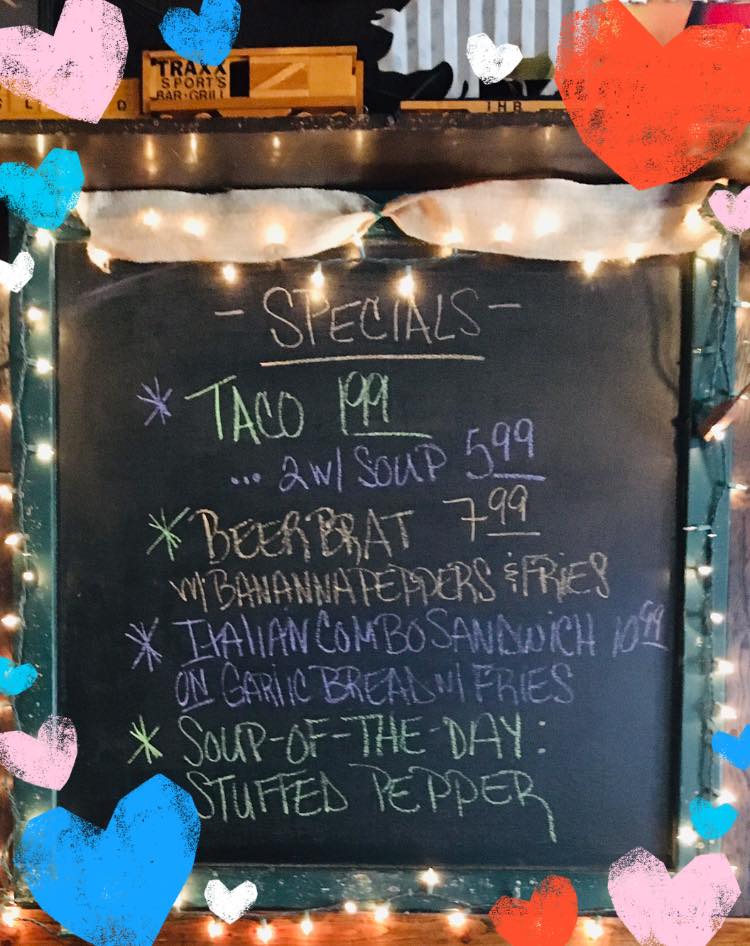 TRAXX
SPORTS
BAR·GRILL
IHB
- SPECIALS -
* TACO 1.99
... 2 w/ SOUP 5.99
* BEER BRAT 7.99
w/ BANANNA PEPPERS & FRIES
* ITALIAN COMBO SANDWICH 10.99
ON GARLIC BREAD w/ FRIES
* SOUP-OF-THE-DAY:
STUFFED PEPPER